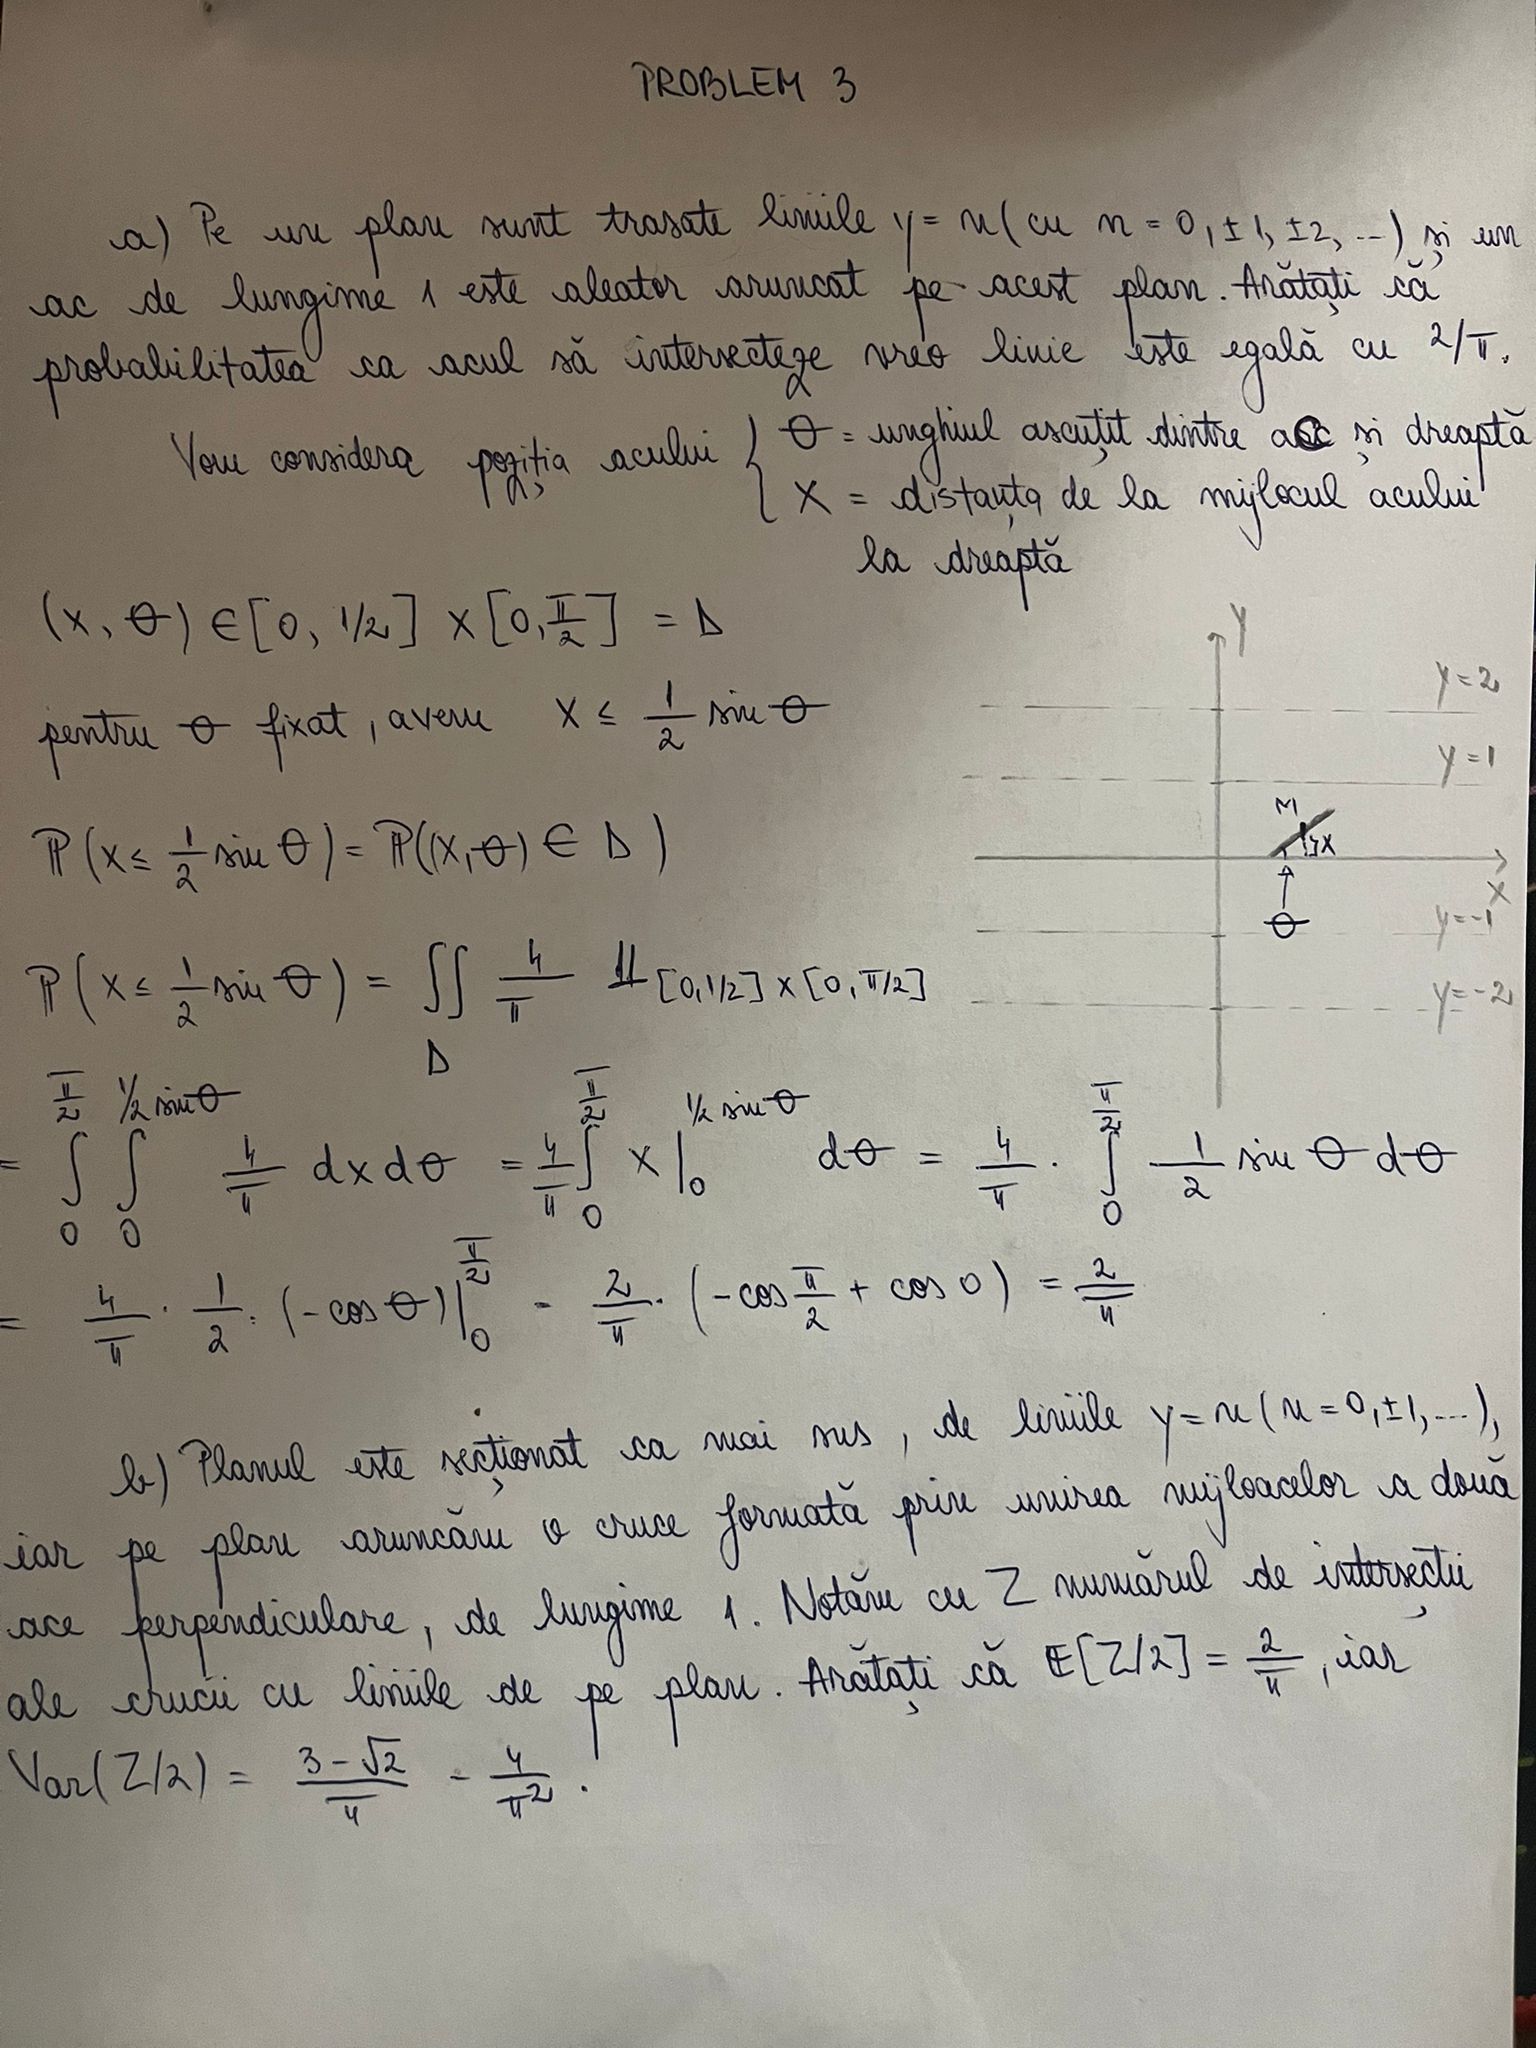 PROBLEM 3
a) Pe un plan sunt trasate liniile y = n (cu n = 0, ±1, ±2, ...) și un
ac de lungime 1 este aleator aruncat pe acest plan. Arătați că
probabilitatea ca acul să intersecteze vreo linie este egală cu 2/π.
Vom considera poziția acului { θ = unghiul ascuțit dintre ac și dreaptă
X = distanța de la mijlocul acului
la dreaptă
(X, θ) ∈ [0, 1/2] × [0, π/2] = D
pentru θ fixat, avem X ≤ 1/2 sin θ
P(X ≤ 1/2 sin θ) = P((X, θ) ∈ D)
P(X ≤ 1/2 sin θ) = ∬_D 4/π 𝟙_{[0,1/2] × [0, π/2]}
= ∫_0^{π/2} ∫_0^{1/2 sin θ} 4/π dx dθ = 4/π ∫_0^{π/2} x|_0^{1/2 sin θ} dθ = 4/π · ∫_0^{π/2} 1/2 sin θ dθ
= 4/π · 1/2 · (-cos θ)|_0^{π/2} = 2/π · (-cos π/2 + cos 0) = 2/π
Y
y = 2
y = 1
M
X
X
θ
y = -1
y = -2
b) Planul este secționat ca mai sus, de liniile y = n (n = 0, ±1, ...),
iar pe plan aruncăm o cruce formată prin unirea mijloacelor a două
ace perpendiculare, de lungime 1. Notăm cu Z numărul de intersecții
ale crucii cu liniile de pe plan. Arătați că E[Z/2] = 2/π, iar
Var(Z/2) = (3 - √2)/π - 4/π².